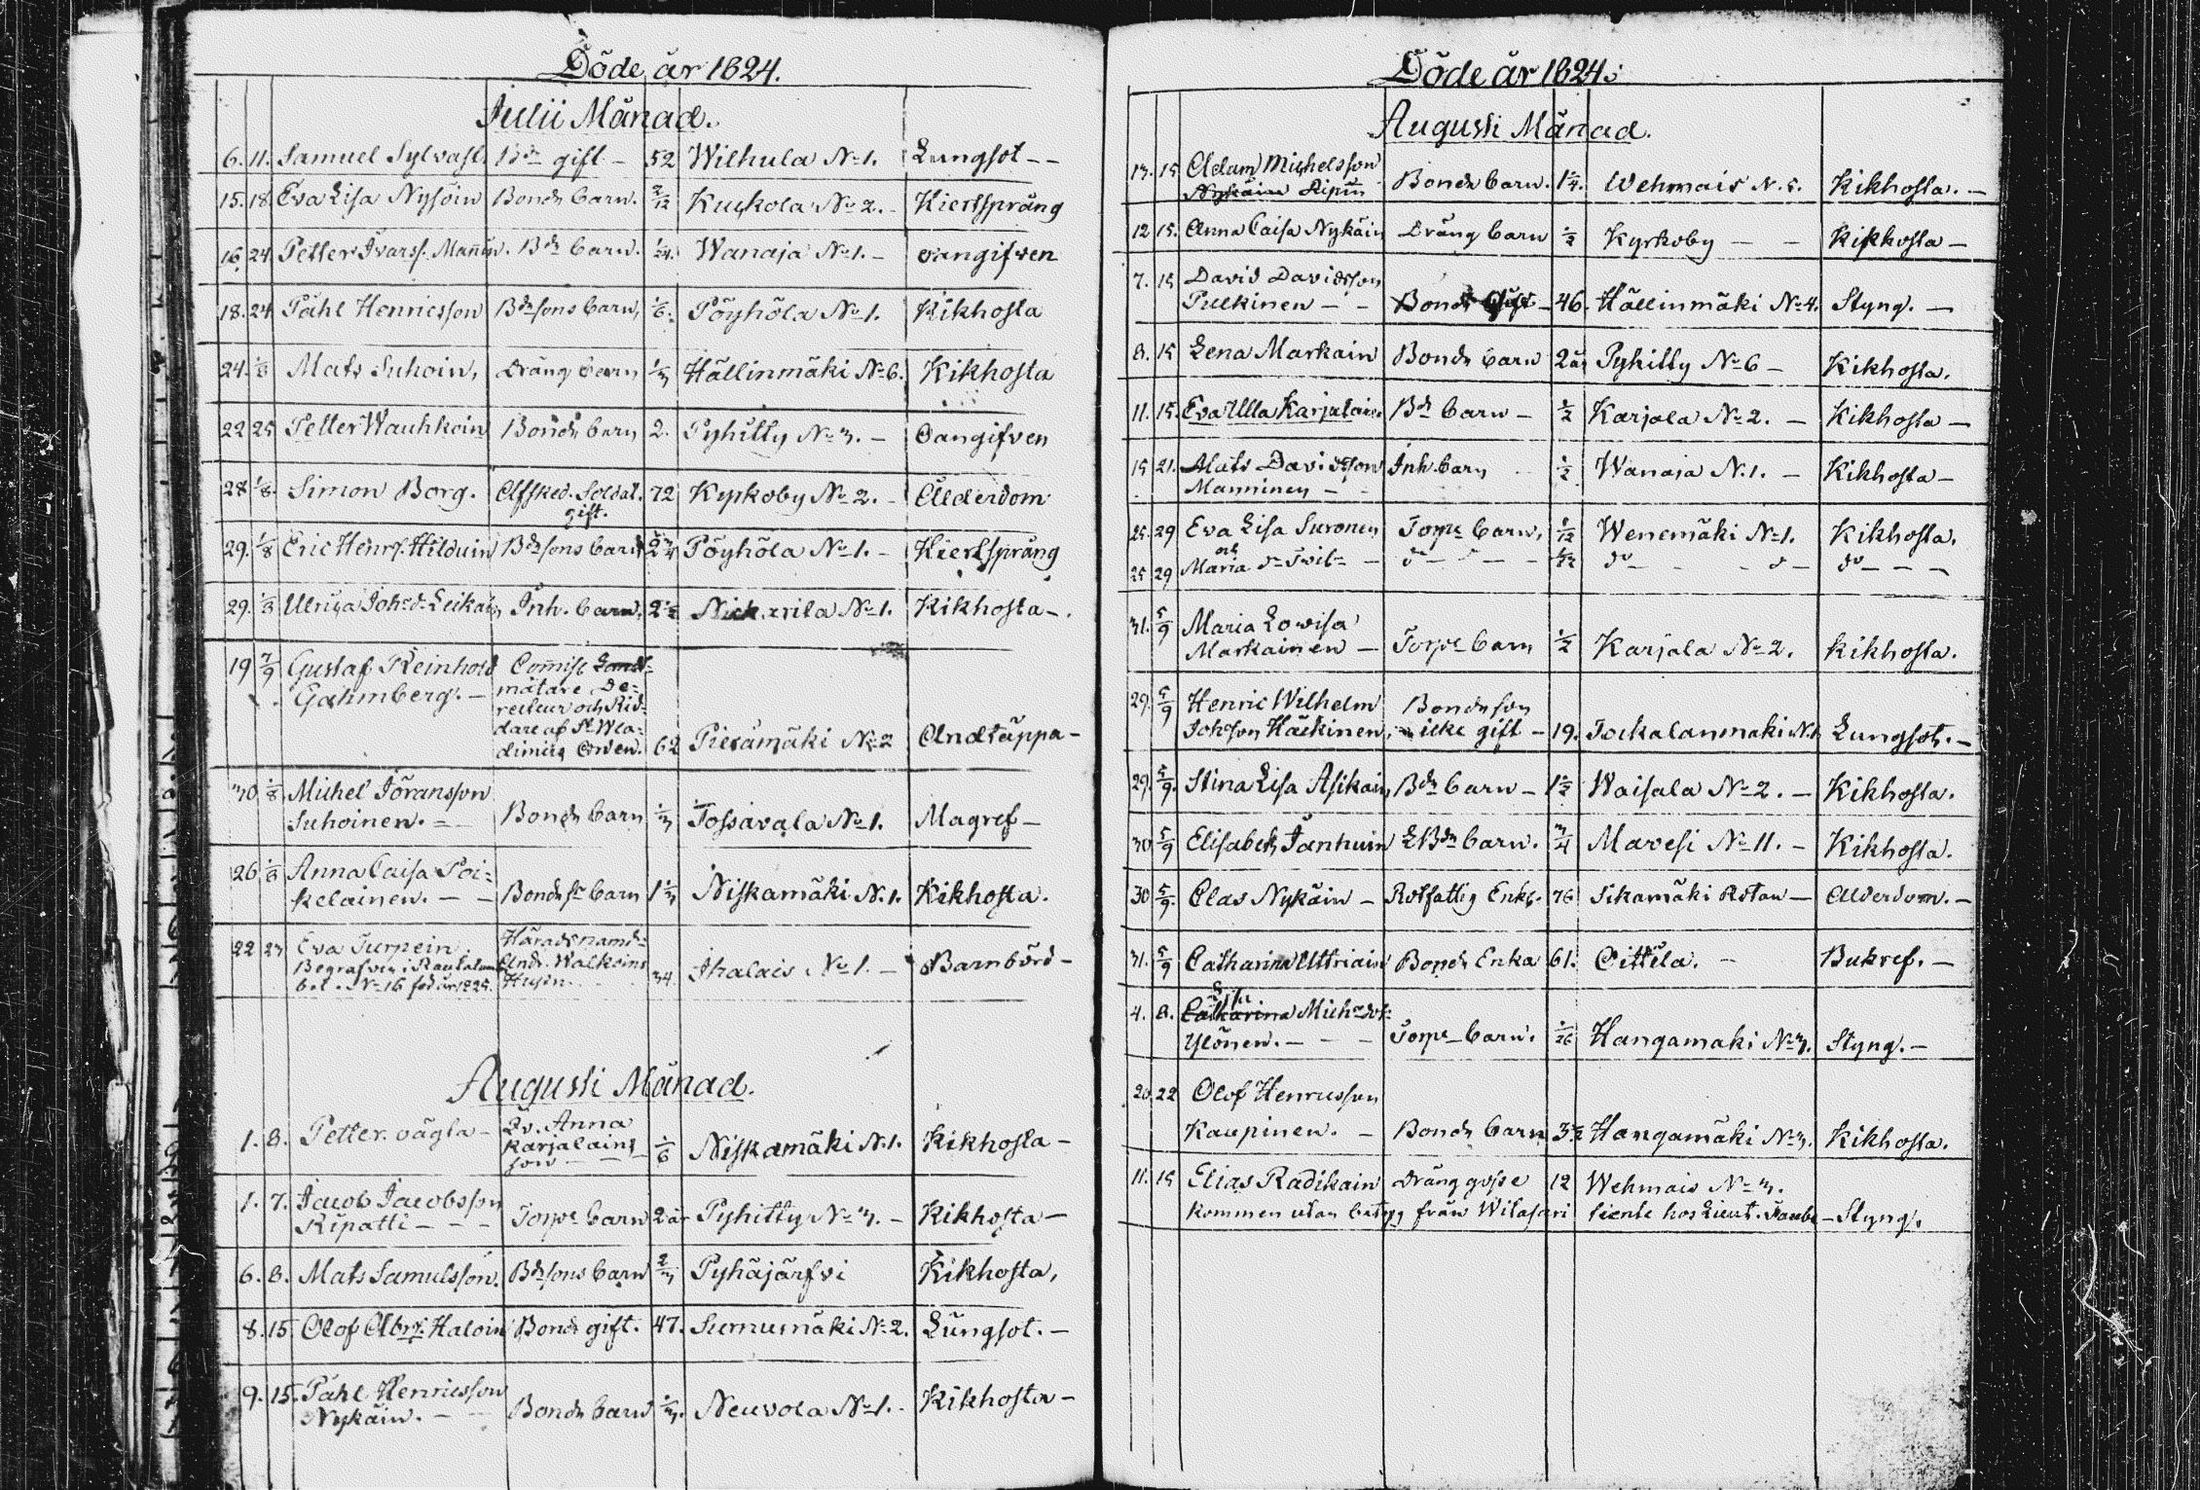 Döde år 1824.
Julii Månad.
6. 11. Samuel Sylvast Bde gift - 52 Wilhula No 1. Lungsot - -
15. 18 Eva Lisa Nysöin Bonde barn. 2/12 Kuckola No 2. - Kiertspräng
16. 24 Petter Ivarss. Mañin. Bde barn. 1/24. Wanaja No 1. - oangifven
18. 24 Påhl Henricsson Bdesons barn, 1/6. Pöyhölä No 1. Kikhosta
24. 1/8 Mats Suhoin, Dräng barn 1/3 Hällinmäki No 6. Kikhosta
22 25 Petter Wauhkoin Bonde barn 2. Pyhitty No 3. - Oangifven
28 1/8. Simon Borg. Affsked. Soldat. 72 Kyrkoby No 2. - Ålderdom
gift.
29. 1/8 Eric Henr. Hilduin Bdesons barn 2 3/4 Pöyhölä No 1. - Kiertspräng
29. 1/8 Ulrica Johsd. Leikain, Inh. barn, 2 1/2 No 1. Kikhosta -.
19 7/9 Gustaf Reinhold Comiss. Landt-
Gahmberg. - mätare De-
recteur och Rid-
dare af St Wla-
dimirs Orden. 62 Pieksämäki No 2 Andtäppa -
30 1/8 Michel Göransson
Suhoinen. - Bonde barn 1/3 Tossavala No 1. Magref -
26 1/8 Anna Caisa Poi-
kelainen. - - Bonde sr barn 1 1/3 Niskamäki N. 1. Kikhosta.
22 23 Eva Turpein Häradsnämd:
Begrafven i Rautalam Andr. Walkoins
No 16 för år 1825. Hustr. 34. Ihalais No 1. - Barnbörd -
Augusti Månad.
1. 8. Petter oägta - Qv. Anna
Karjalains
son 1/6 Niskamäki N. 1. Kikhosta -
1. 7. Jacob Jacobsson
Ripatti - - - Torpe barn 2 år Pyhitty No 3. - Kikhosta -
6. 8. Mats Samulsson. Bdesons barn 2/3 Pyhäjärfvi Kikhosta,
8. 15. Olof Haloin Bonde gift. 47. Surnumäki No 2. Lungsot. -
9. 15. Påhl Henricsson
Nykäin. - - Bonde barn 1/3. Neuvola No 1. - Kikhosta -
Döde år 1824.
Augusti Månad.
13. 15 Adam Michelsson
Nykäin Ripin Bonde barn. 1 1/4. Wehmais N. 5. Kikhosta. -
12 15. Anna Caisa Nykäin Dräng barn 1/2 Kyrkoby - - Kikhosta -
7. 15 David Davidsson
Pulkinen - - Bonde Gift - 46. Hällinmäki No 4. Styng. -
8. 15 Lena Markain Bonde barn 2 år Pyhitty No 6 - Kikhosta.
11. 15. Eva Ulla Karjalain Bde barn - 1/2 Karjala No 2. - Kikhosta -
15 21. Mats Davidsson Inh. barn 1/2 Wanaja N. 1. - Kikhosta -
Manninen - -
25. 29 Eva Lisa Suronen Torpe barn, 1/12 Wenemäki No 1. Kikhosta.
25 29 och Maria do Tvil. - do - - - 1/12 do - - do - do - - -
31. 5/9 Maria Lowisa
Markainen - Torpe barn 1/2 Karjala No 2. kikhosta.
29. 5/9 Henric Wilhelm Bonde son
Johsson Häckinen, icke gift - 19. Jockalanmäki N. 1 Lungsot. -
29. 5/9 Stina Lisa Asikain, Bde barn - 1 1/2 Waisala No 2. - Kikhosta.
30 5/9 Elisabeth Janhuin LBde barn. 3/4 Maresi No 11. - Kikhosta.
30 5/9. Clas Nykäin - Rotfattig Enkl. 76 Sikamäki Rotan - Ålderdom. -
31. 5/9 Catharina Uttriain Bonde Enka 61. Oittila. - Bukref. -
4. 8. Catharina Michelsdr
Ylönen. - - - Torpe barn. 1/26 Hangamäki No 3. Styng. -
20. 22 Olof Henricsson
Kaupinen. - Bonde barn 3 1/2 Hangamäki No 3. Kikhosta.
11. 15 Elias Radikain Dräng gosse 12 Wehmais No 3.
kommen utan betyg från Witasari tiente hos Lieut. - Styng.